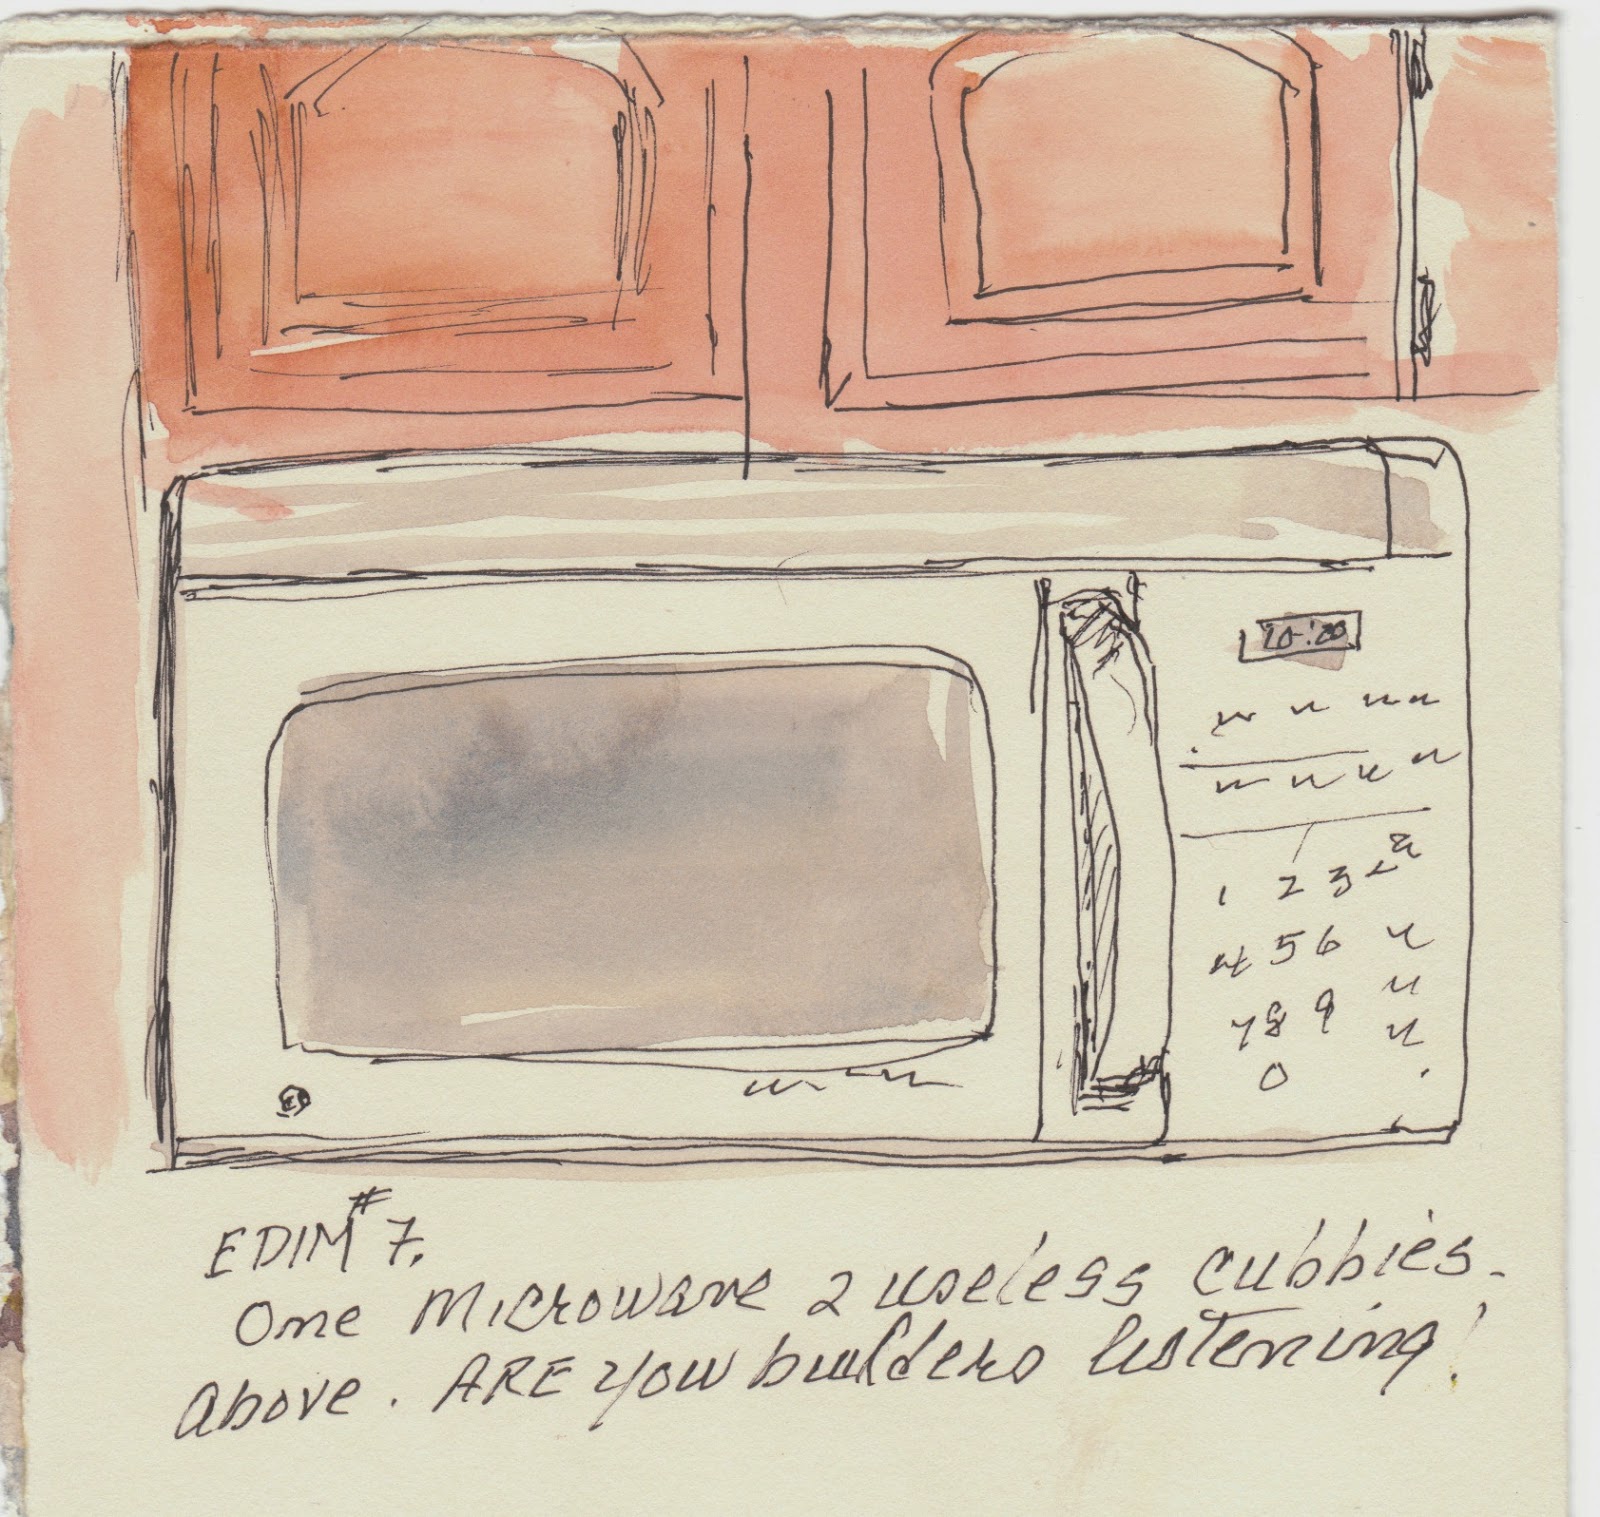 10:20
1 2 3
4 5 6
7 8 9
0
EDIM #7.
One Microwave 2 useless cubbies
above. ARE you builders listening!